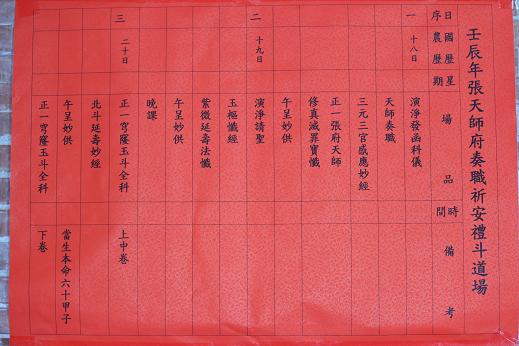 壬辰年張天師府奏職祈安禮斗道場
日序 國曆農曆 星期 場品 時間 備考
一 十八日 演淨發函科儀
天師奏職
三元三官感應妙經
正一張府天師
修真滅罪寶懺
午呈妙供
二 十九日 演淨請聖
玉樞懺經
紫微延壽法懺
午呈妙供
晚課
三 二十日 正一穹窿玉斗全科 上中卷
北斗延壽妙經
午呈妙供 當生本命六十甲子
正一穹窿玉斗全科 下卷